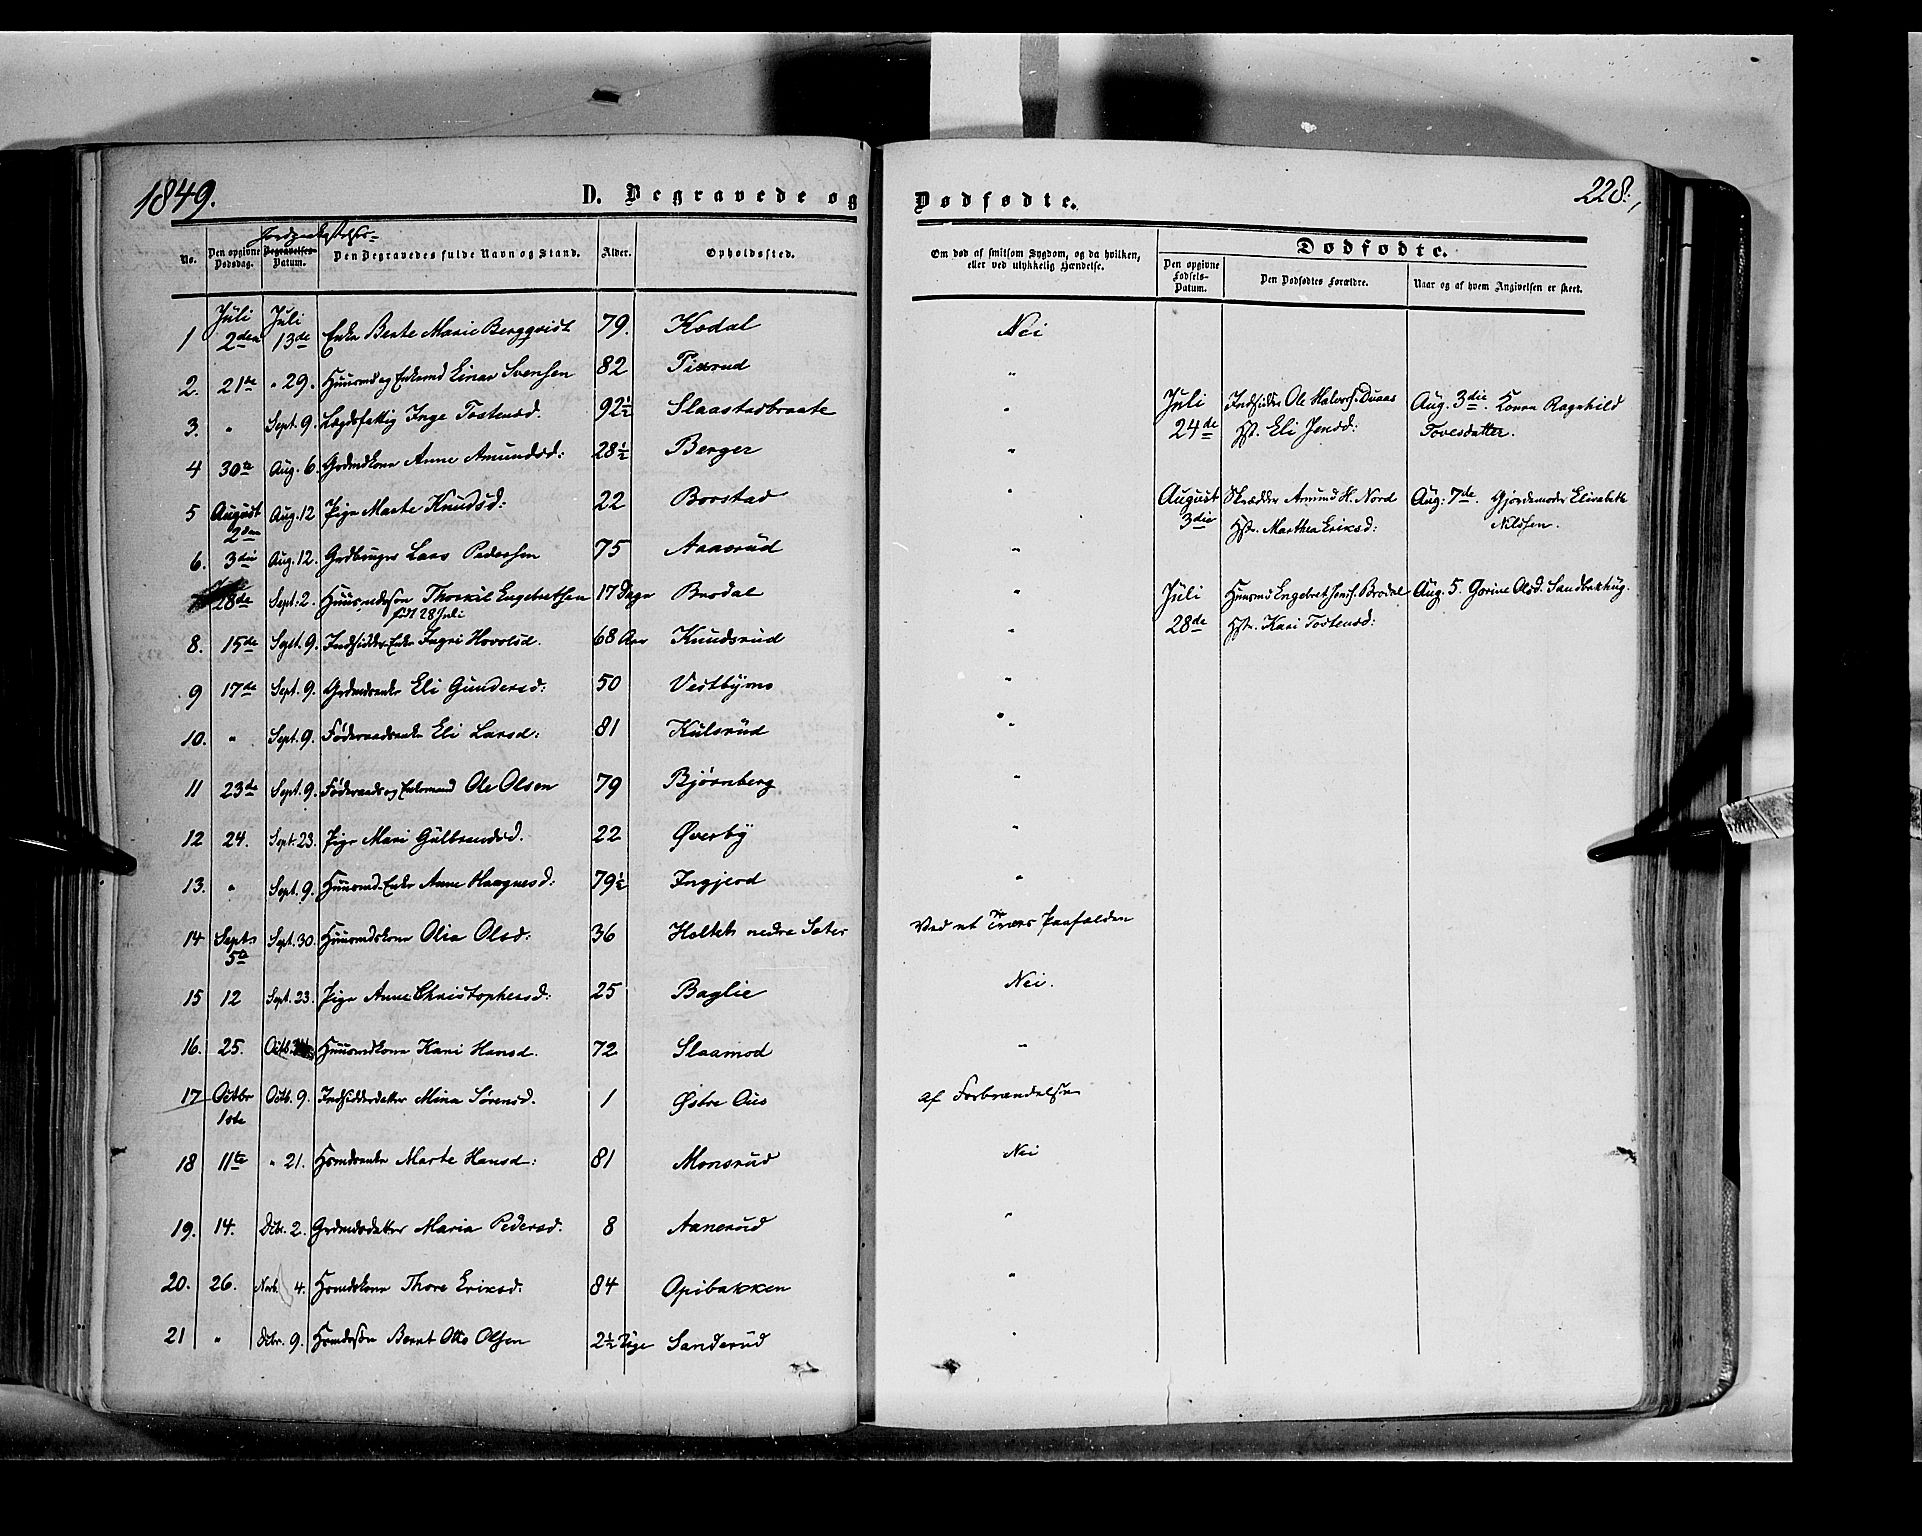 1849.
D. Begravede og Dødfødte.
228.
No.
Den opgivne Dødsdag.
Jordpaakastelses-
Begravelses-Datum.
Den Begravedes fulde Navn og Stand.
Alder.
Opholdssted.
Om død af smitsom Sygdom, og da hvilken, eller ved ulykkelig Hændelse.
Dødfødte.
Den opgivne Fødsels-Datum.
Den Dødfødtes Forældre.
Naar og af hvem Angivelsen er skeet.
1 Juli 2den Juli 13de Enke Beate Marie Bergqvist 79. Kodal Nei
2. 21te " 29. Huusmd og Enkemd Einar Svensen 82 "
3. " Sept. 9. Lægdsfattig Inge Tostensd. 92½ Slaastadbraate "
4 30te Aug. 6. Grdmdkone Anne Amundsd: 28½ Berger "
5 August 2den Aug. 12 Pige Marte Knudsd: 22 Borstad "
6. 3die Aug. 12. Grdbruger Lars Pedersen 75 Aanerud "
28de Sept. 2. Huusmdssøn Thorkil Engebretsen 17 Dage Brodal "
født 28 Juli
8. 15de Sept. 9. Indsidder-Enke Ingri Hovolsd. 68 Aar Knudsrud "
9 17de Sept. 9. Grdmdsenke Eli Gundersd: 50 Vestbymo "
10. " Sept. 9. Føderaadsenke Eli Larsd: 81 Kulsrud "
11 23de Sept. 9. Føderaads og Enkemand Ole Olsen 79 Bjørnberg "
12 24. Sept. 23. Pige Mari Gulbrandsd. 22 Øverby "
13. " Sept. 9. Huusmd-Enke Anne Haagensd: 79½ Ingjerd "
14 Septr 5te Sept. 30. Huusmdskone Olia Olsd: 36 Holtet nedre Sæter Ved et Træes Paafalden
15 12 Sept. 23. Pige Anne Christophersd: 25 Baglie Nei.
16. 25. Octb. Huusmdkone Kari Hansd. 72 Slaamod "
17 Octbr 1ste Octb. 9. Indsidderdatter Mina Sørensd. 1 Østre Ous af Forbrændelse
18 11te " 21. Hsmdsenke Marte Hansd: 81 Monsrud Nei
19. 14. Dcbr. 2. Grdmdsdatter Maria Pedersd. 8 Aanerud "
20. 26. Novb. 4. Hsmdskone Thore Eriksd: 84 Opibakken "
21 " Dcbr. 9. Hsmdssøn Bernt Otto Olsen 2½ Uge Sanderud "
Juli 24de Indsidder Ole Halvors. Duaas Aug. 3die. Konen Ragnhild
Hst. Eli Jensd: Tovesdatter.
August 3die Skrædder Amund H. Nord Aug: 7de. Gjordemoder Elisabeth
Hst. Marthea Eriksd: Nilssen.
Juli 28de Huusmd Engebret Jens. Brodal Aug. 5. Gorine Olsd. Sandbakhug.
Hst. Kari Tostensd: